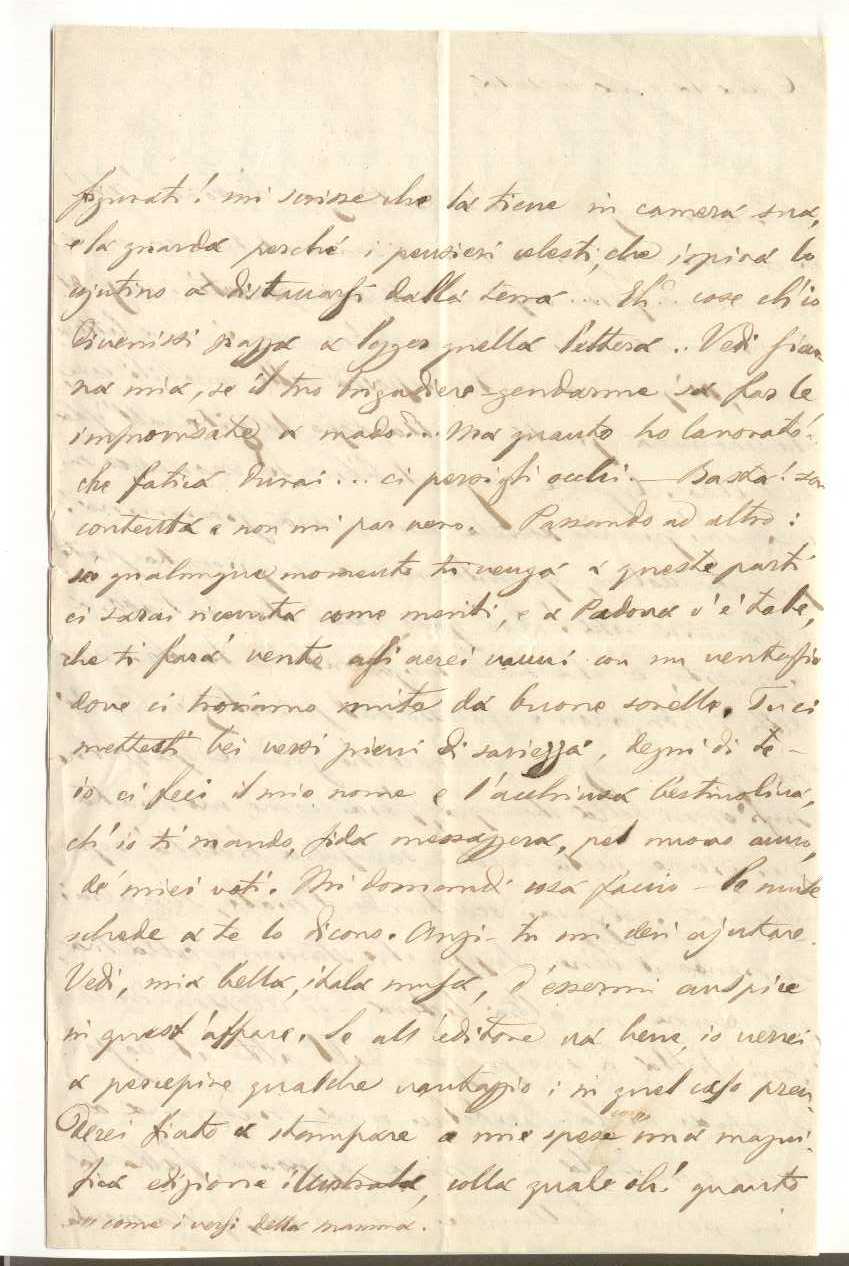 figurati! mi scrisse che la tiene in camera sua,
e la guarda perché i pensieri celesti, che ispira lo
ajutino a distaccarsi dalla terra... Eh!.. cose ch'io
divenissi pazza a legger quella lettera.. Vedi
na mia, se il tuo brigadiere-gendarme sa far le
improvisate a modo... Ma quanto ho lavorato!..
che fatica durai... ci persi gli occhi. — Basta! son
contenta e non mi par vero. Passando ad altro:
se qualunque momento tu venga a queste parti
ci sarai ricevuta come meriti, e a Padova v'è tale,
che ti farà vento agli aerei vanni con un ventaglio
dove ci troviamo unite da buone sorelle. Tu ci
mettesti bei versi pieni di saviezza, degni di te —
io ci feci il mio nome e l'acchiusa bestiolina,
ch'io ti mando, fida messaggera, pel nuovo anno,
de' miei voti. Mi domandi cosa faccio — le unite
schede a te lo dicono. Anzi — tu mi devi ajutare.
Vedi, mia bella, itala musa, d'essermi auspice
in quest'affare. Se all'editore va bene, io verrei
a percepire qualche vantaggio; in quel caso pren-
derei fiato a stampare a mie spese una magni-
fica edizione illustrata, colla quale oh! quanto
come i versi della mamma.